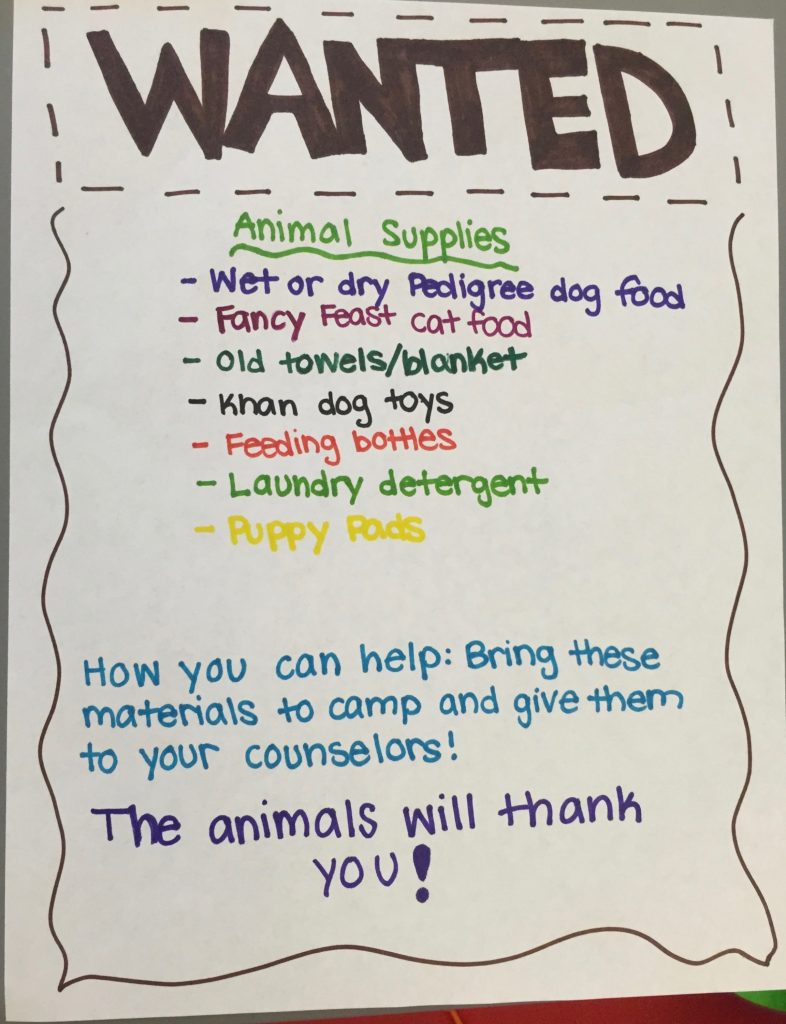 WANTED
Animal Supplies
- Wet or dry Pedigree dog food
- Fancy Feast cat food
- Old towels/blanket
- Khan dog toys
- Feeding bottles
- Laundry detergent
- Puppy Pads
How you can help: Bring these
materials to camp and give them
to your counselors!
The animals will thank
you!